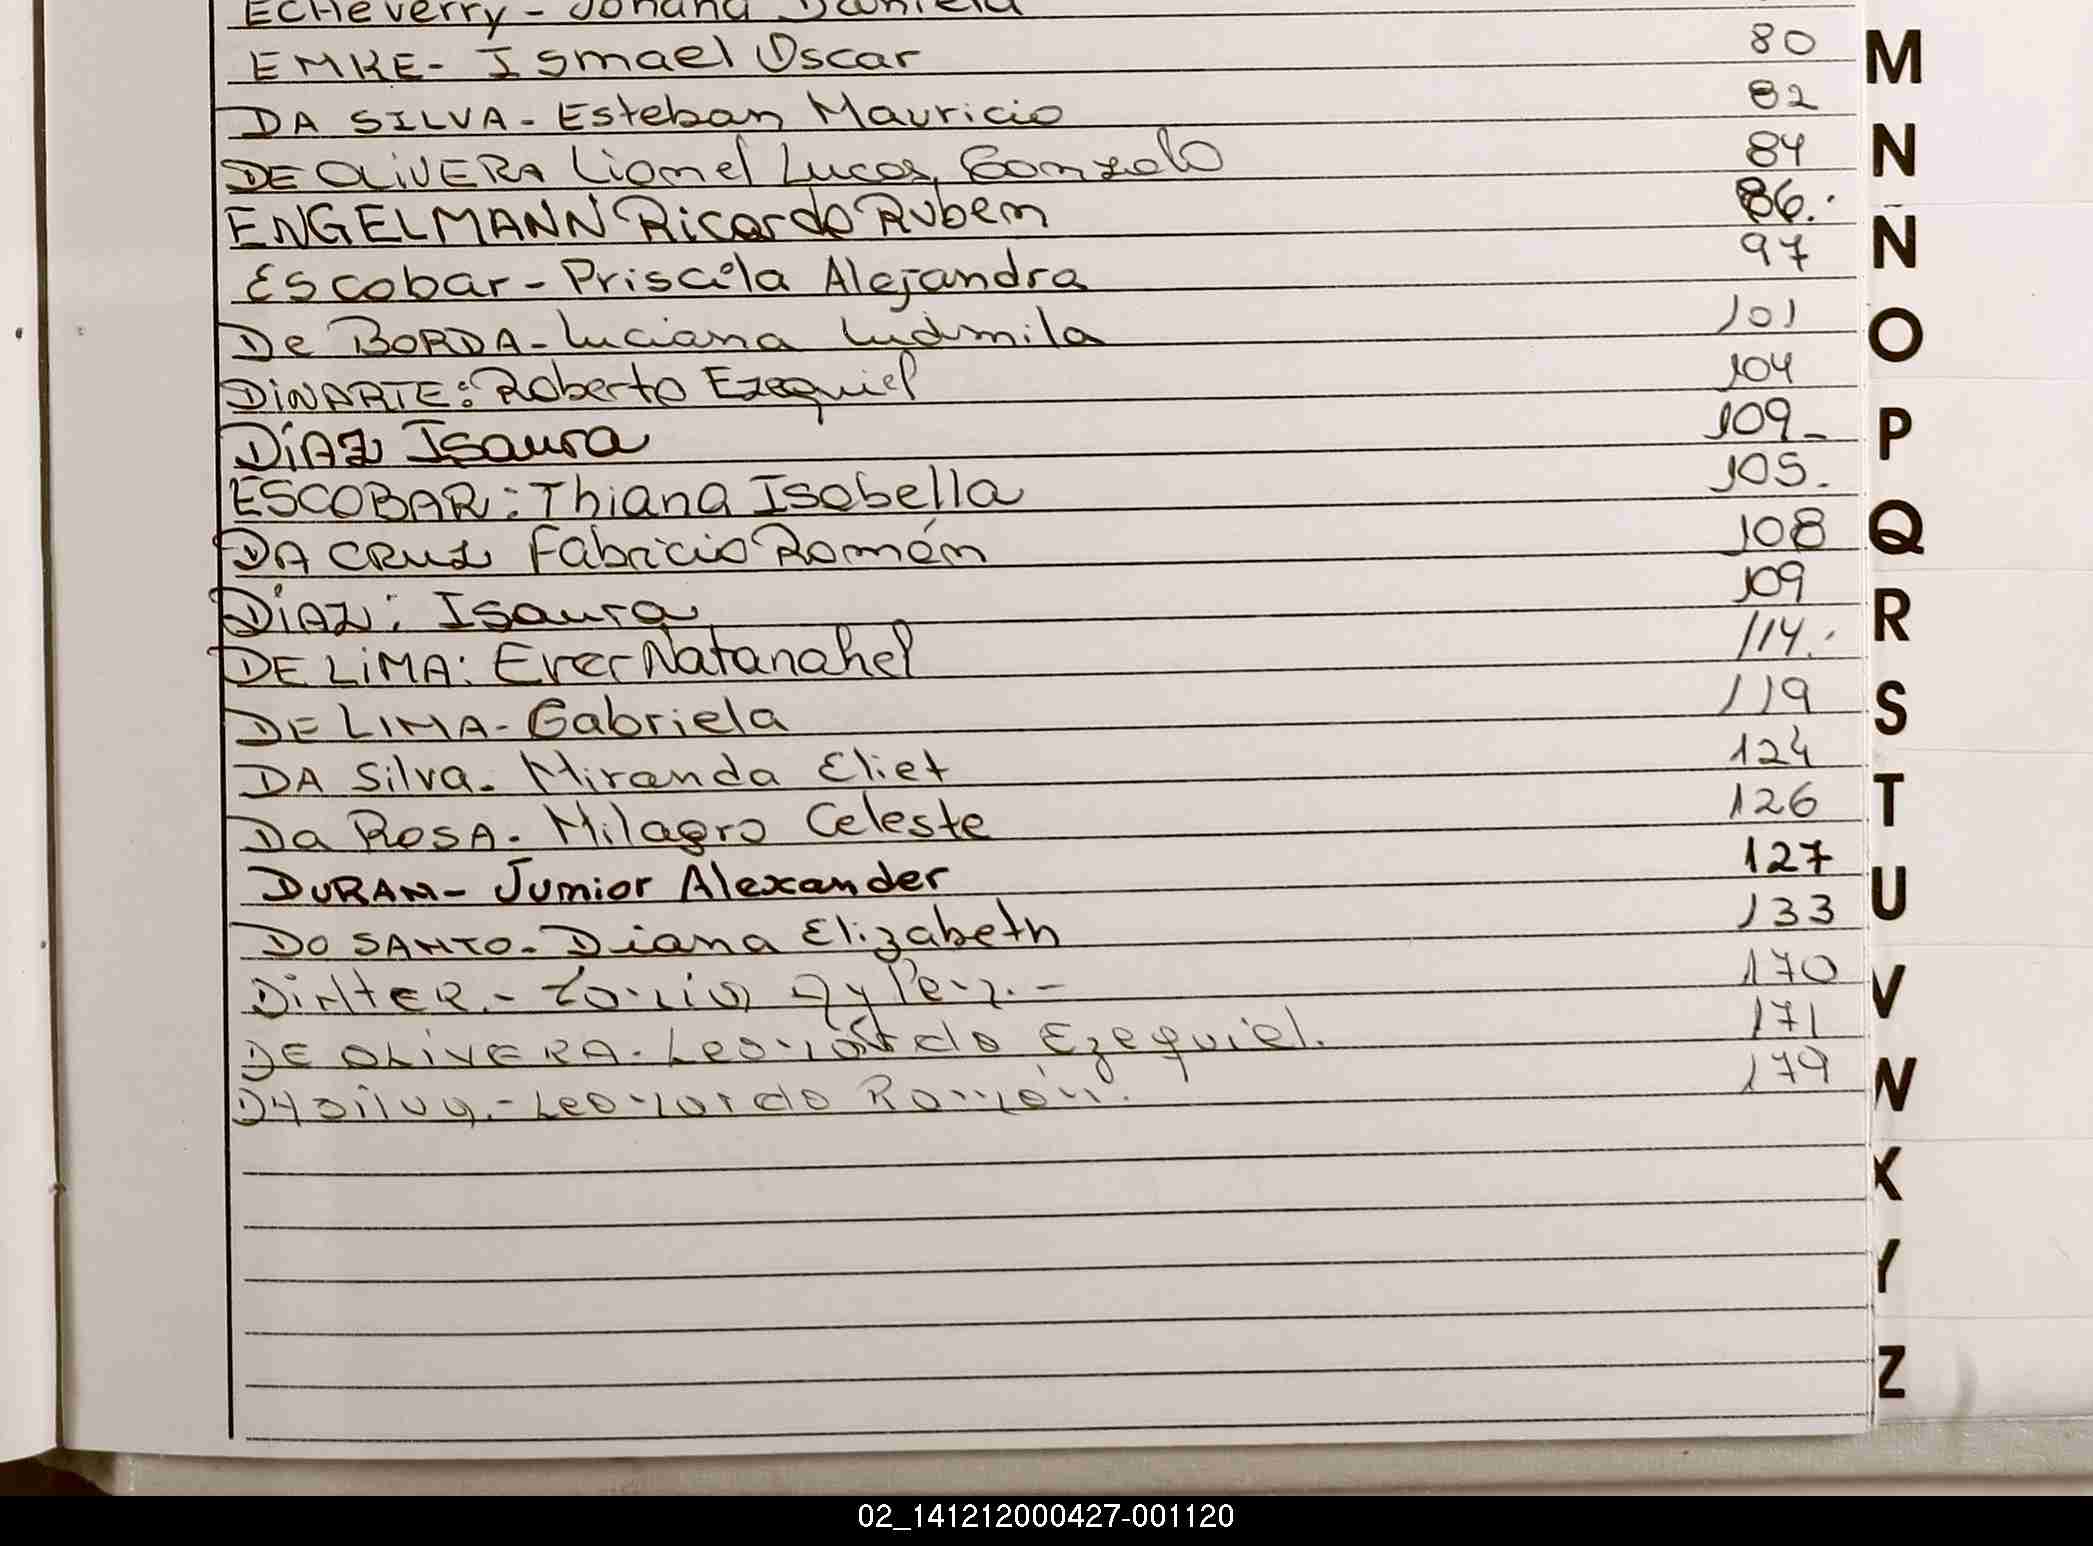 Echeverry - Johana Daniela
EMKE - Ismael Oscar 80
DA SILVA - Esteban Mauricio 82
DE OLIVERA Lionel Lucas Gonzalo 84
ENGELMANN Ricardo Ruben 86.
Escobar - Priscila Alejandra 97
De BORDA - Luciana Ludmila 101
DiNARTE: Roberto Ezequiel 104
DíAZ Isaura 109-
ESCOBAR: Thiana Isabella 105.
DA CRUZ Fabricio Román 108
DíAZ: Isaura 109
DE LiMA: Ever Natanahel 114.
DE LIMA - Gabriela 119
DA Silva. Miranda Eliet 124
Da RosA. Milagro Celeste 126
DURAN - Junior Alexander 127
DO SANTO. Diana Elizabeth 133
170
DE OLIVERA. Leonardo Ezequiel. 171
Leonardo Ramón. 179
M
N
Ñ
O
P
Q
R
S
T
U
V
W
X
Y
Z
02_141212000427-001120